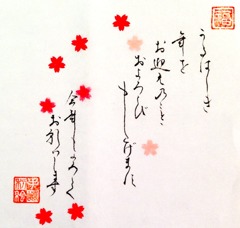 うるはしき
年を
お迎えのこと
およろこび
申しあげます
今年もよろしく
お願いします